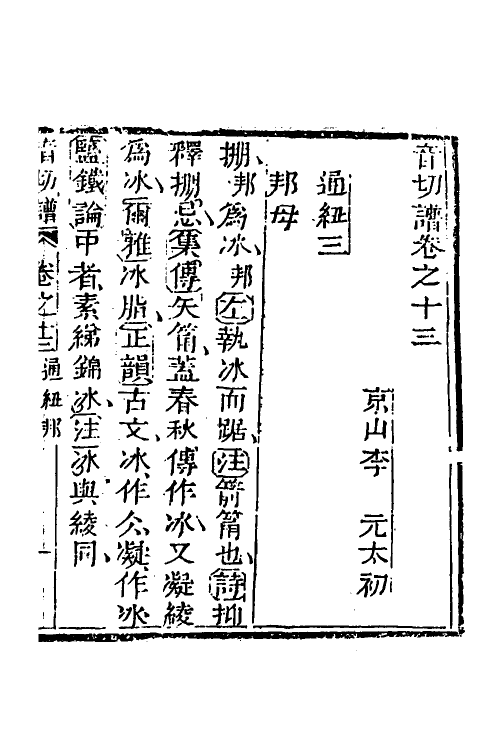 音切譜卷之十三
京山李　元太初
通紐三
邦母
掤邦爲冰邦左執冰而踞注箭筩也詩抑
釋掤忌集傳矢筩蓋春秋傳作冰又凝綾
爲冰爾雅冰脂正韻古文冰作仌凝作冰
鹽鐵論中者素綈錦冰注冰與綾同
音切譜 卷之十三 通紐邦 一